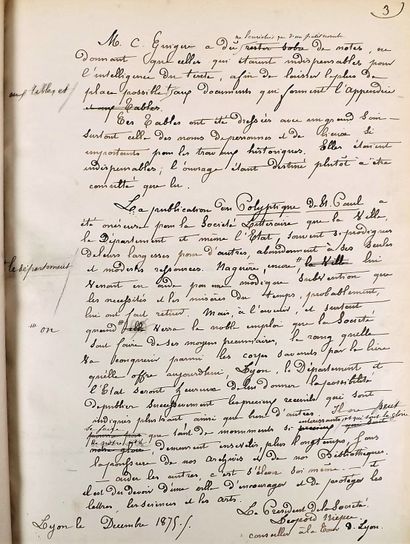 3
M. C. Guigue a dû rester sobre de notes, ne
donnant que celles qui étaient indispensables pour
l'intelligence du texte, afin de laisser le plus de
place possible aux documents qui forment l'appendice
aux tables et
et aux Tables.
Ces Tables ont été dressées avec un grand soin
surtout celle des noms de personnes et de lieux si
importants pour les travaux historiques. Elles étaient
indispensables; l'ouvrage étant destiné plutôt à être
consulté que lu.
La publication du Polyptique de St. Paul a
été onéreuse pour la Société Littéraire que la Ville,
le Département et même l'Etat, souvent si prodigues
de leurs largesses pour d'autres, abandonnent à ses seules
et modestes ressources. Naguère, encore la Ville lui
le département
venait en aide par une modique subvention que
les nécessités et les misères du temps, probablement,
lui ont fait retirer. Mais, à l'avenir, et surtout
on
quand verra le noble emploi que la Société
sait faire de ses moyens pécuniaires, le rang qu'elle
va conquérir parmi les corps savants par le livre
qu'elle offre aujourd'hui, Lyon, le Département et
l'Etat seront heureux de lui donner la possibilité
de publier successivement les précieux recueils qui sont
indiqués plus haut ainsi que bien d'autres. Il ne peut
que tant de monuments si
intéressants
demeurent inédits plus longtemps, dans
la poussière de nos archives et de nos Bibliothèques.
Aider les autres c'est s'élever soi même
il est du devoir d'une ville d'encourager et de protéger les
lettres, les sciences et les arts.
Le Président de la Société
Léopold Niepce
conseiller à la Cour d. Lyon.
Lyon le Decembre 1875